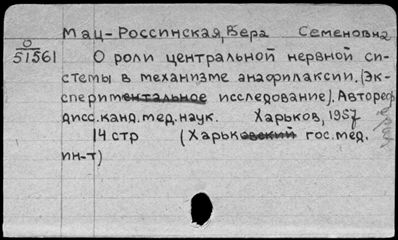 Мац-Россинская, Вера Семеновна
О
51561
О роли центральной нервной си-
стемы в механизме анафилаксии. (Эк-
спериментальное исследование). Автореф
дисс. канд. мед. наук. Харьков, 1957
14 стр (Харьковский гос. мед.
ин-т)